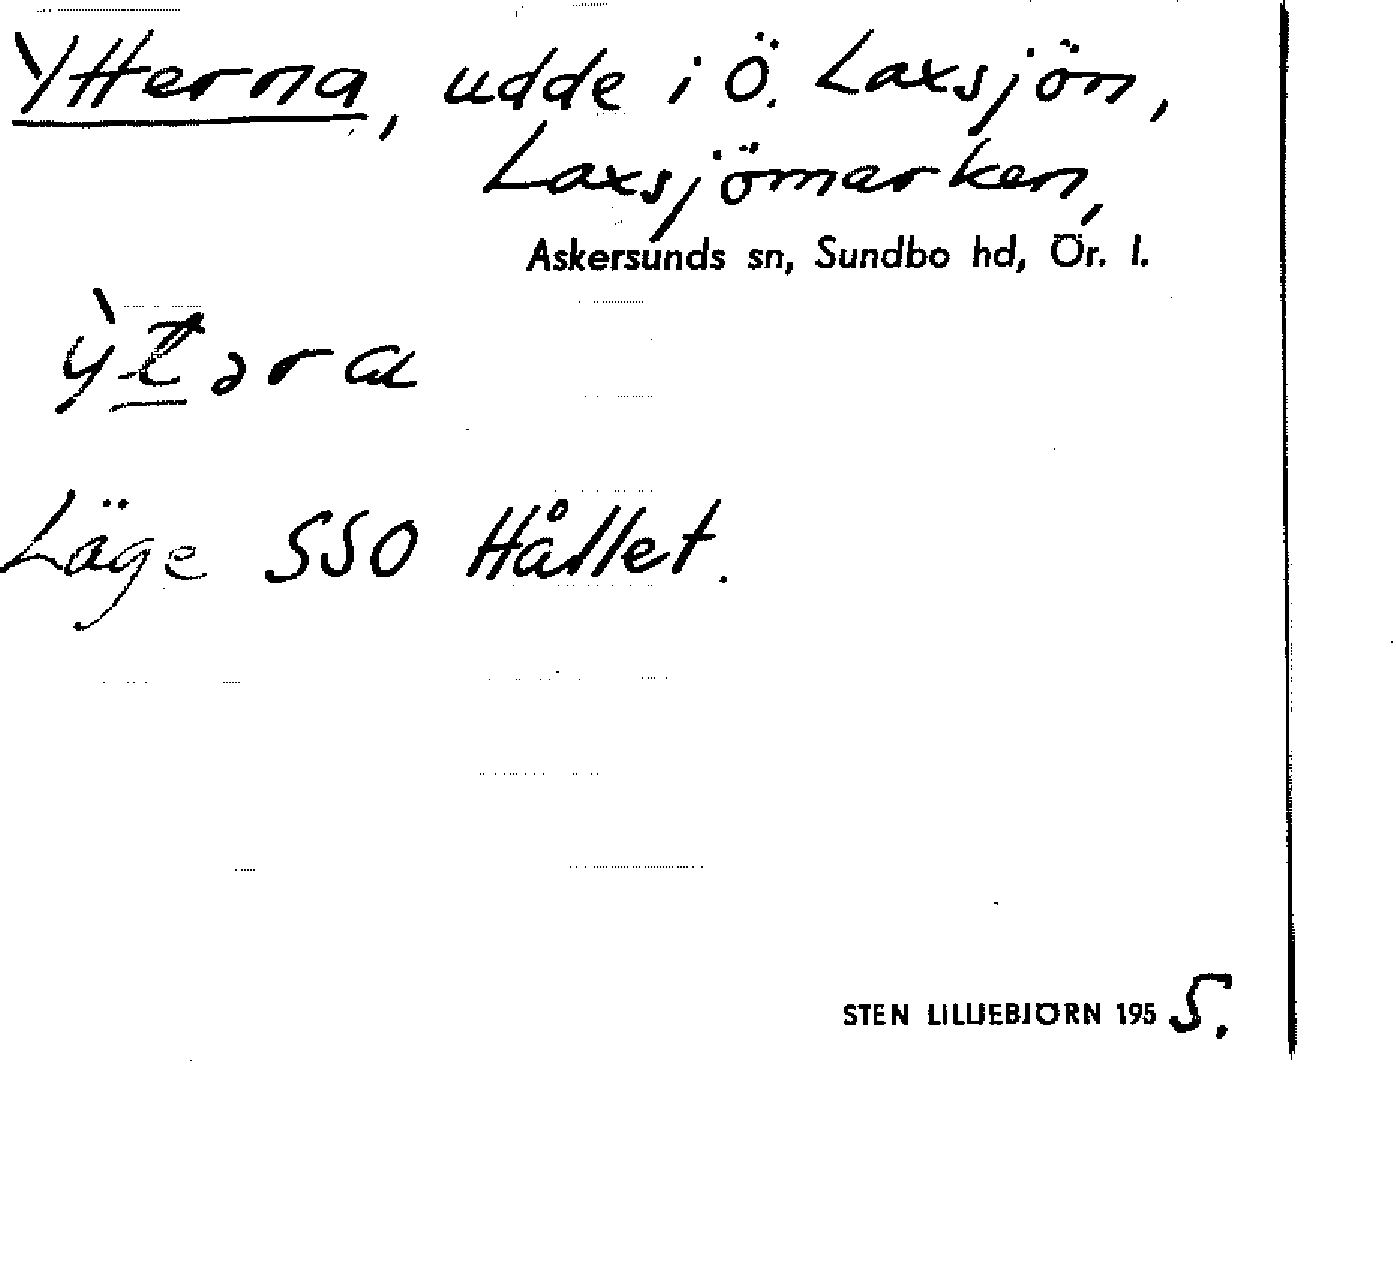 Ytterna, udde i Ö. Laxsjön,
Laxsjömarken,
Askersunds sn, Sundbo hd, Ör. l.
ỳt̲əra
Läge SSO Hållet.
STEN LILLIEBJÖRN 1955.